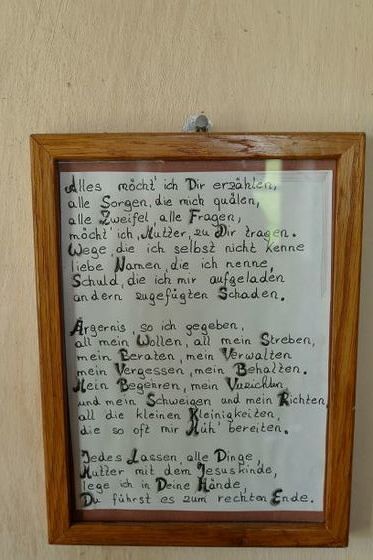 Alles möcht' ich Dir erzählen,
alle Sorgen, die mich quälen,
alle Zweifel, alle Fragen,
möcht' ich, Mutter, zu Dir tragen.
Wege, die ich selbst nicht kenne
liebe Namen, die ich nenne,
Schuld, die ich mir aufgeladen
andern zugefügten Schaden.
Ärgernis, so ich gegeben,
all mein Wollen, all mein Streben,
mein Beraten, mein Verwalten
mein Vergessen, mein Behalten.
Mein Begehren, mein
und mein Schweigen und mein Richten,
all die kleinen Kleinigkeiten,
die so oft mir Müh' bereiten.
Jedes Lassen, alle Dinge,
Mutter mit dem Jesuskinde,
lege ich in Deine Hände,
Du führst es zum rechten Ende.